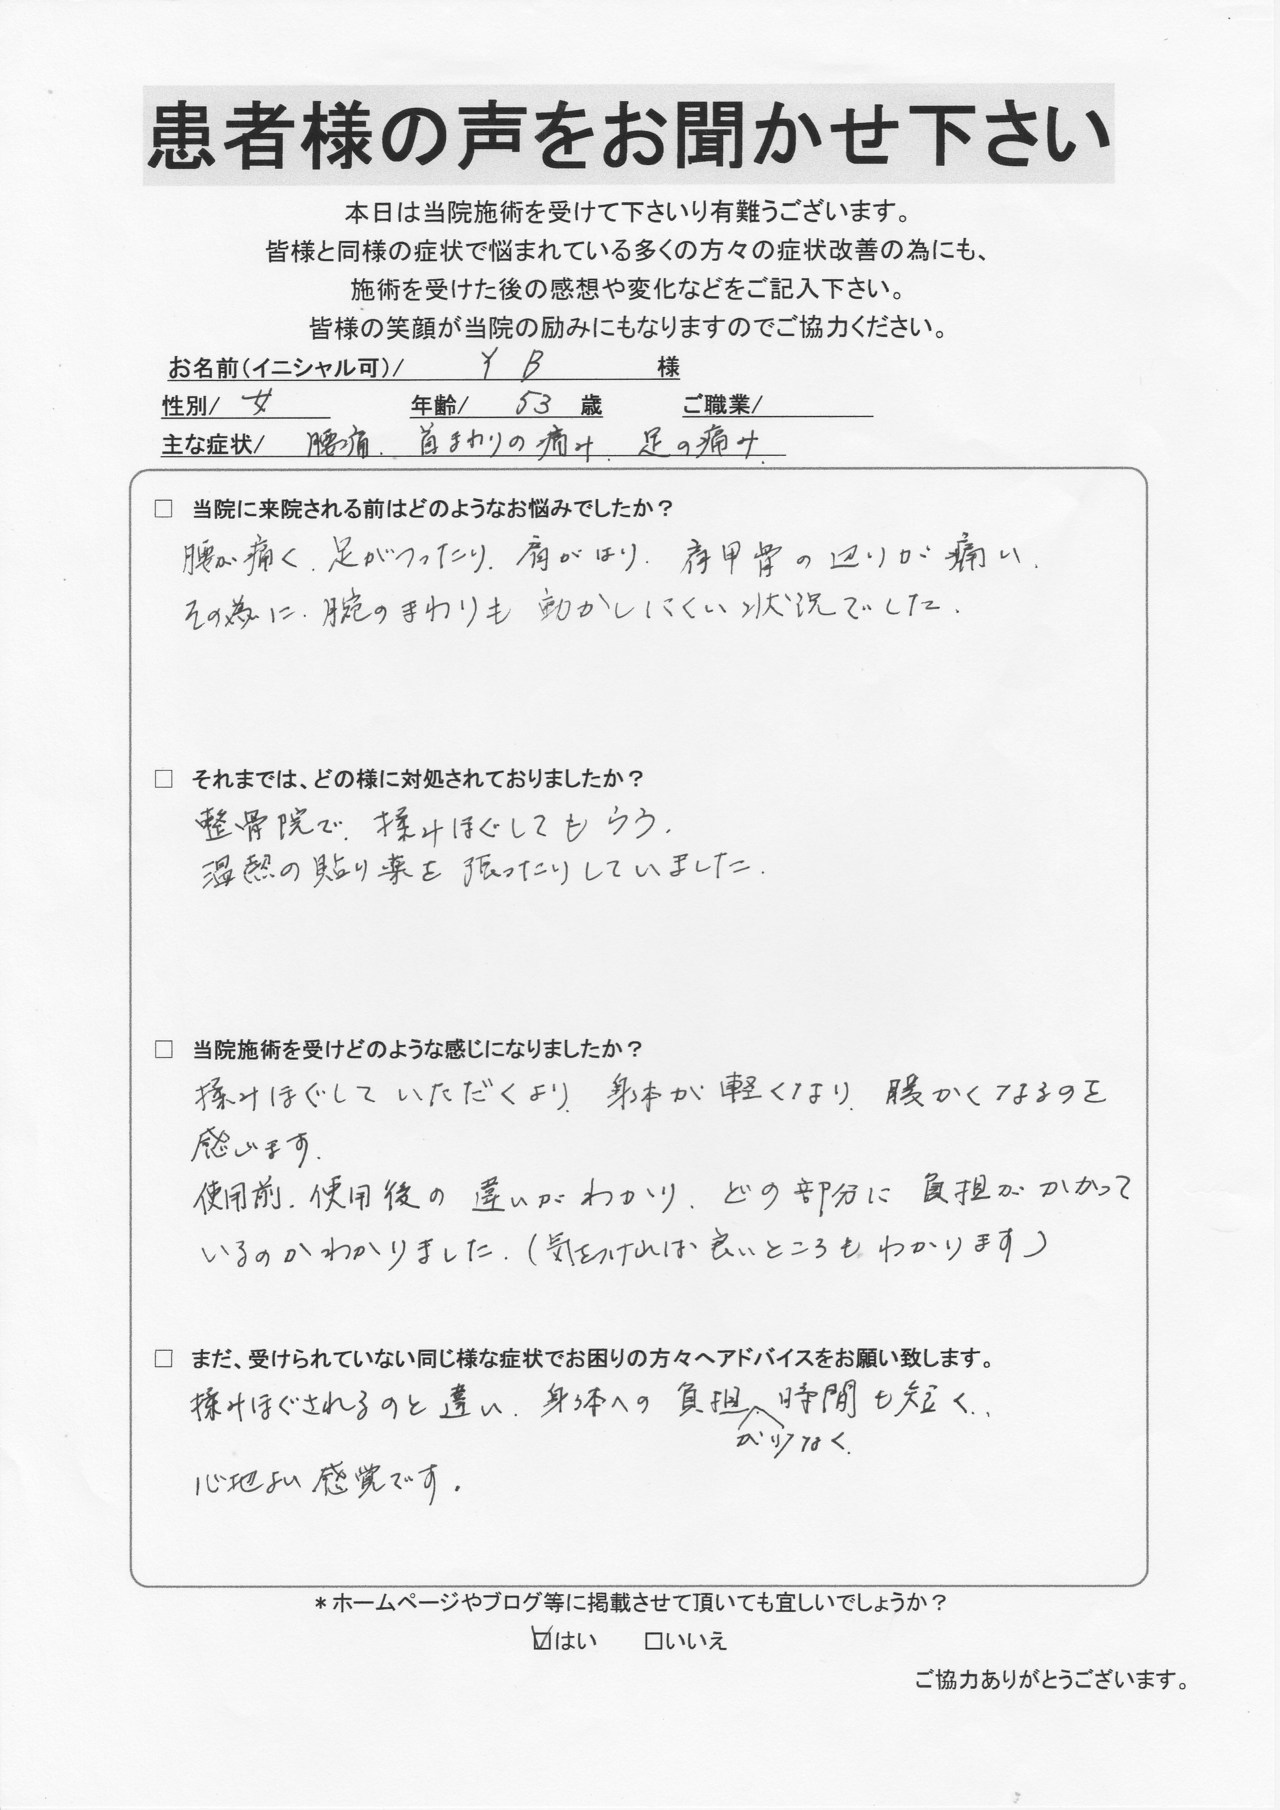 患者様の声をお聞かせ下さい
本日は当院施術を受けて下さいり有難うございます。
皆様と同様の症状で悩まれている多くの方々の症状改善の為にも、
施術を受けた後の感想や変化などをご記入下さい。
皆様の笑顔が当院の励みにもなりますのでご協力ください。
お名前(イニシャル可)/ Y B 様
性別/ 女 年齢/ 53 歳 ご職業/
主な症状/ 腰痛. 首まわりの痛み. 足の痛み.
□ 当院に来院される前はどのようなお悩みでしたか?
腰が痛く. 足がつったり. 肩がはり. 肩甲骨の辺りが痛い.
その為に. 腕のまわりも動かしにくい状況でした.
□ それまでは、どの様に対処されておりましたか?
整骨院で. 揉みほぐしてもらう.
温熱の貼り薬を張ったりしていました.
□ 当院施術を受けどのような感じになりましたか?
揉みほぐしていただくより. 身体が軽くなり. 暖かくなるのを
感じます.
使用前. 使用後の違いがわかり. どの部分に負担がかかって
いるのかわかりました.(気をつければ良いところもわかります)
□ まだ、受けられていない同じ様な症状でお困りの方々へアドバイスをお願い致します。
揉みほぐされるのと違い. 身体への負担. 時間も短く..
がなく.
心地よい感覚です.
*ホームページやブログ等に掲載させて頂いても宜しいでしょうか?
☑はい □いいえ
ご協力ありがとうございます。